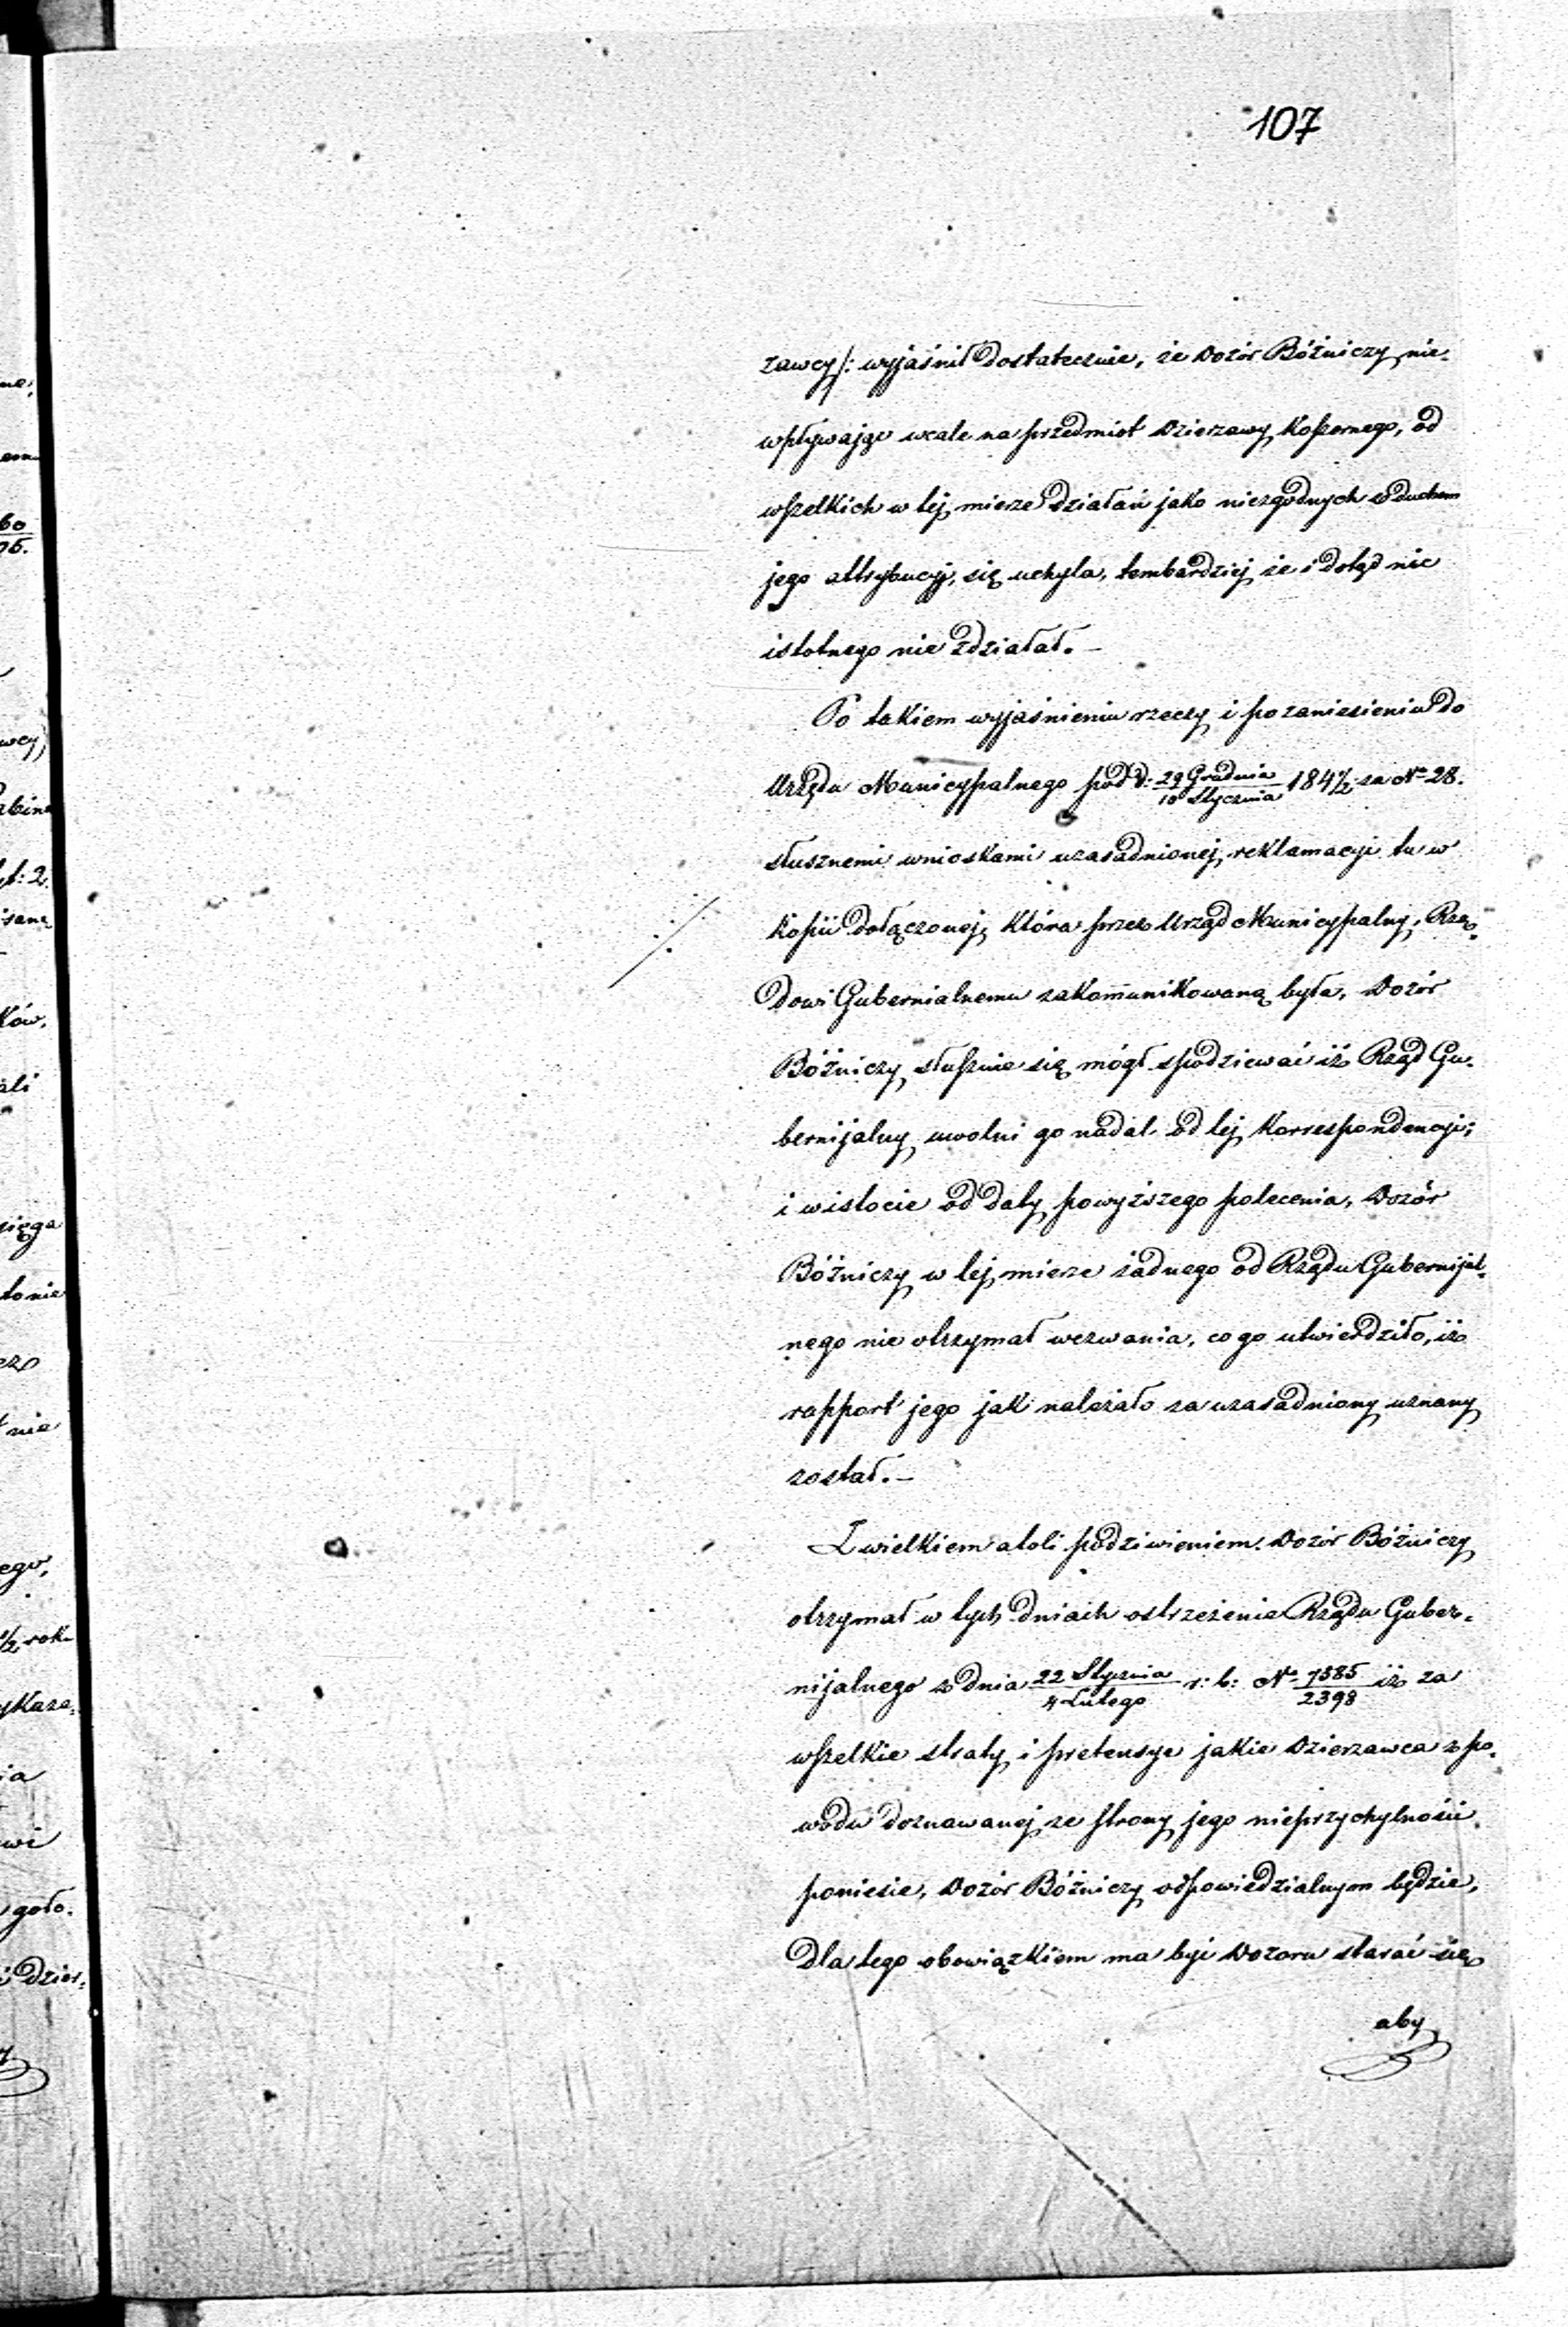 107
żawcy/: wyjaśnił dostatecznie, że Dozór Bóżniczy nie-
wpływając wcale na przedmiot Dzierżawy Koszernego, od
wszelkich w tej mierze działań jako niezgodnych z duchem
jego attrybucyj, się uchyla, tembardziej że i dotąd nic
istotnego nie zdziałał. –
Po takiem wyjaśnieniu rzeczy i po zaniesieniu do
Urzędu Municypalnego pod d: 29 Grudnia/10 Stycznia 1841/2 za No 28.
słusznemi wnioskami uzasadnionej reklamacyi tu w
./. kopii dołączonej, która przez Urząd Municypalny, Rzą-
dowi Gubernialnemu zakomunikowaną była, Dozór
Bóżniczy słusznie się mógł spodziewać iż Rząd Gu-
bernijalny uwolni go nadal od tej Korrespondencyi;
i w istocie od daty powyższego polecenia, Dozór
Bóżniczy w tej mierze żadnego od Rządu Gubernijal-
nego nie otrzymał wezwania, co go utwierdziło, iż
rapport jego jak należało za uzasadniony uznany
został. –
Z wielkiem atoli podziwieniem Dozór Bóżniczy
otrzymał w tych dniach ostrzeżenie Rządu Guber-
nijalnego z dnia 22 Stycznia/4 Lutego r: b: No 7385/2398 iż za
wszelkie straty i pretensye jakie Dzierżawca z po-
wodu doznawanej ze strony jego nieprzychylności
poniesie, Dozór Bóżniczy odpowiedzialnym będzie,
dla tego obowiązkiem ma być Dozoru starać się
aby